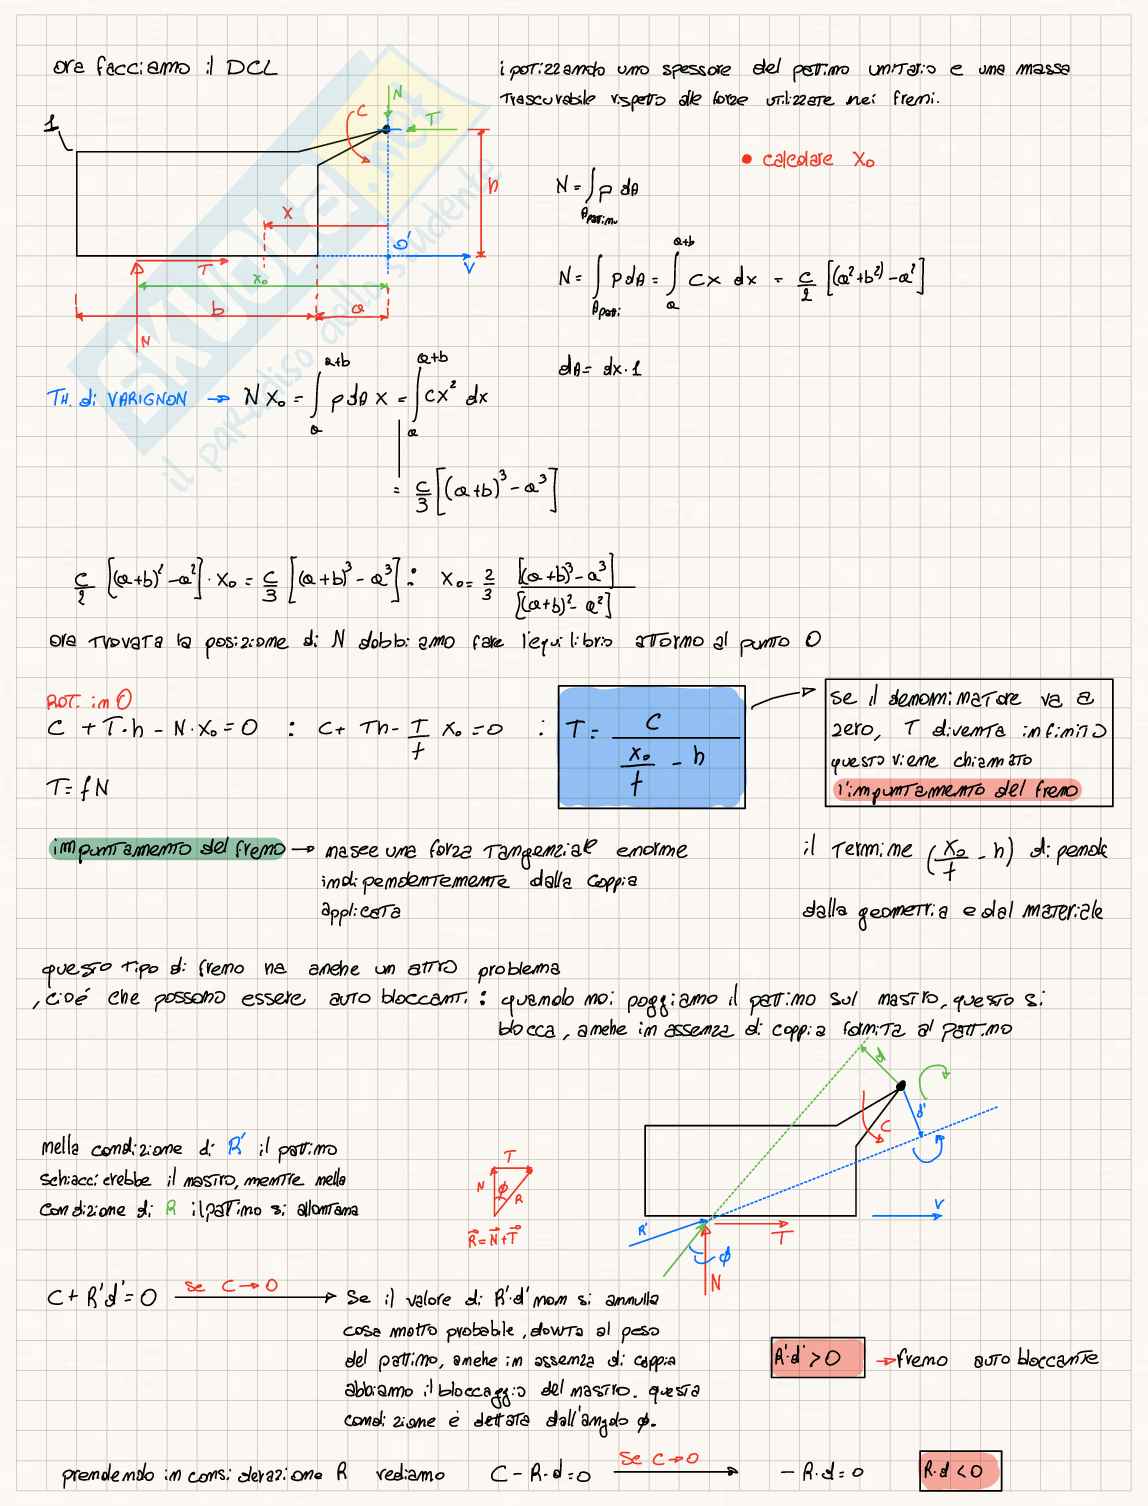 ora facciamo il DCL
ipotizzando uno spessore del pattino unitario e una massa
trascurabile rispetto alle forze utilizzate nei freni.
1
C
N
T
h
x
O'
V
T
x₀
b
a
N
• calcolare X₀
N = ∫_{Apattino} p dA
N = ∫_{Apatti} p dA = ∫_a^{a+b} cx dx = c/2 [(a²+b²) - a²]
dA = dx·1
TH. di VARIGNON → N x₀ = ∫_a^{a+b} p dA x = ∫_a^{a+b} cx² dx
= c/3 [(a+b)³ - a³]
c/2 [(a+b)² - a²] · x₀ = c/3 [(a+b)³ - a³] : x₀ = 2/3 [(a+b)³ - a³] / [(a+b)² - a²]
ora trovata la posizione di N dobbiamo fare l'equilibrio attorno al punto O
ROT. in O
C + T·h - N·x₀ = 0 : C + Th - T/f x₀ = 0 : T = C / (x₀/f - h)
T = fN
se il denominatore va a
zero, T diventa infinito
questo viene chiamato
l'impuntamento del freno
impuntamento del freno → nasce una forza tangenziale enorme
indipendentemente dalla coppia
applicata
il termine (x₀/f - h) dipende
dalla geometria e dal materiale
questo tipo di freno ha anche un altro problema
, cioé che possono essere auto bloccanti : quando noi poggiamo il pattino sul nastro, questo si
blocca, anche in assenza di coppia fornita al pattino
d
d'
C
V
R'
T
ϕ
N
nella condizione di R' il pattino
schiaccierebbe il nastro, mentre nella
condizione di R il pattino si allontana
T
N
ϕ
R
R⃗ = N⃗ + T⃗
C + R'd' = 0 se C→0 → Se il valore di R'·d' non si annulla
cosa molto probabile, dovuta al peso
del pattino, anche in assenza di coppia
abbiamo il bloccaggio del nastro. questa
condizione é dettata dall'angolo ϕ.
R'·d' > 0 → freno auto bloccante
prendendo in considerazione R vediamo C - R·d = 0 se C→0 → - R·d = 0 R·d < 0
SKUOLA.net
il paradiso dello studente